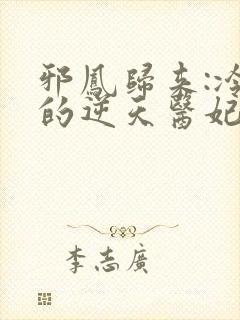 邪鳳歸來:冷
的逆天醫妃
李志廣